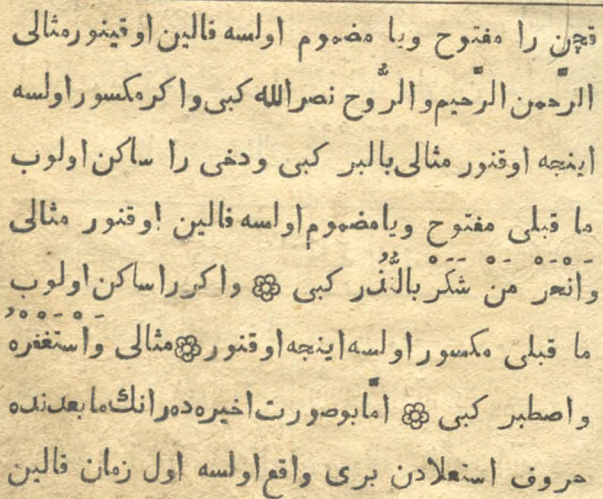 قچن را مفتوح ويا مضموم اولسه قالين اوقينور مثالى
الرَّحمن الرَّحيم و الرُّوح نصر الله كبى و اكر مكسور اولسه
اينجه اوقنور مثالى بالبر كبى و دخى را ساكن اولوب
ما قبلى مفتوح ويا مضموم اولسه قالين اوقنور مثالى
وَانْحَرْ مَنْ شَكَرَ بالنُّذُر كبى ۞ و اكر را ساكن اولوب
ما قبلى مكسور اولسه اينجه اوقنور ۞ مثالى وَاسْتَغْفِرْهُ
و اصطبر كبى ۞ امَّا بو صورت اخيره ده رانك ما بعدنده
حروف استعلادن برى واقع اولسه اول زمان قالين